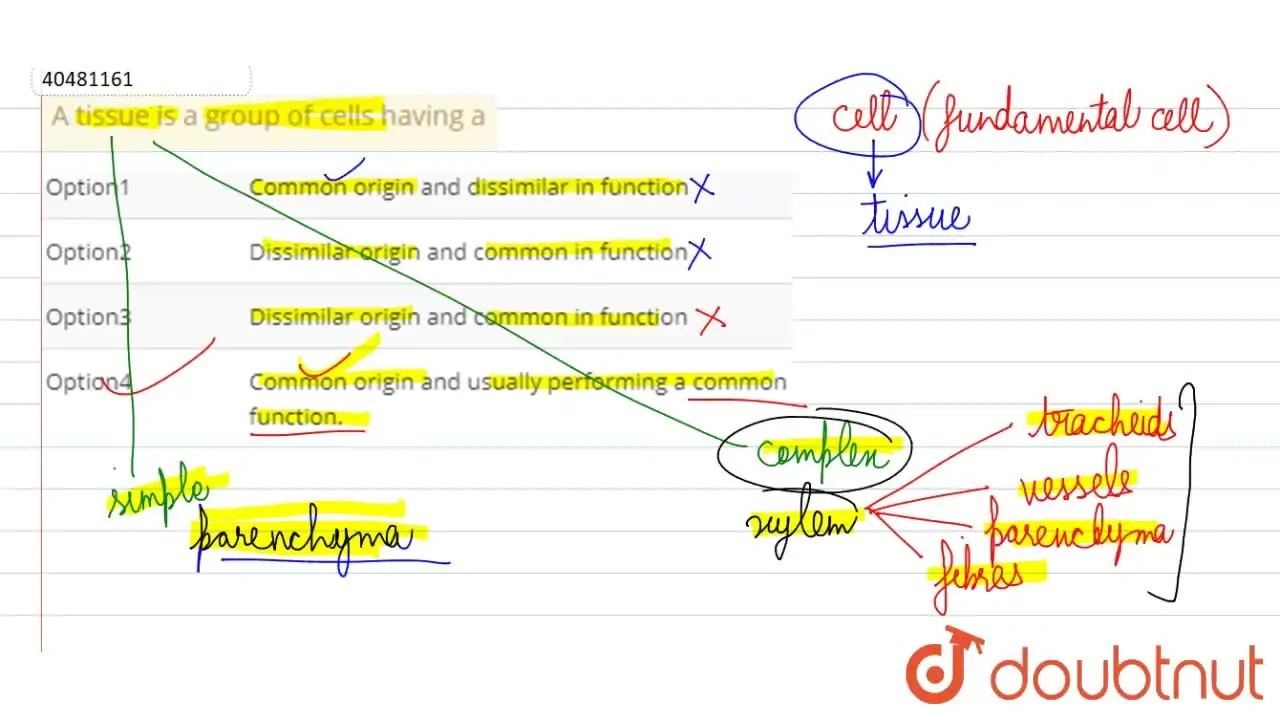 40481161
A tissue is a group of cells having a
Option1 Common origin and dissimilar in function X
Option2 Dissimilar origin and common in function X
Option3 Dissimilar origin and common in function X
Option4 Common origin and usually performing a common
function.
cell (fundamental cell)
tissue
simple
parenchyma
complex
xylem
tracheids
vessels
parenchyma
fibres
doubtnut